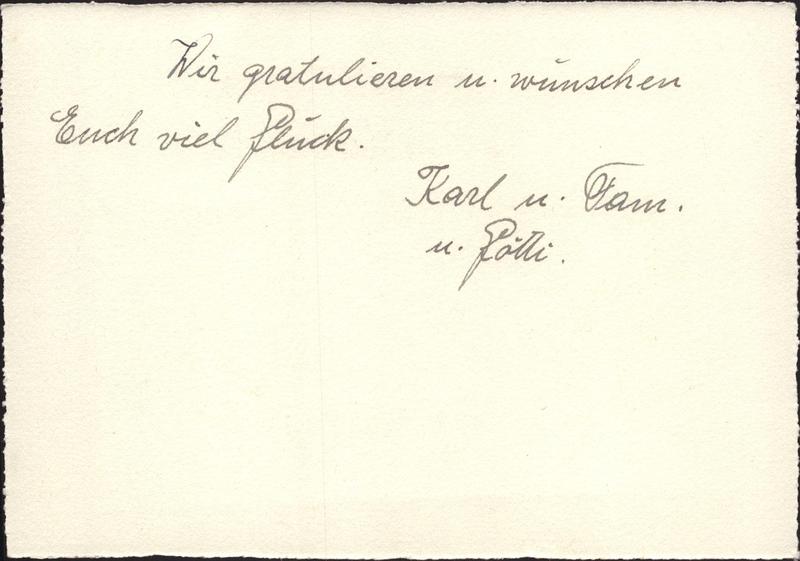 Wir gratulieren u. wünschen
Euch viel Glück.
Karl u. Fam.
u. Götti.